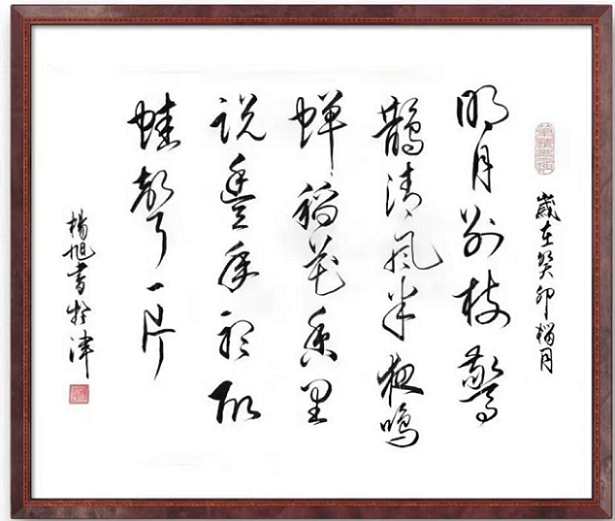 歲在癸卯榴月
明月别枝驚
鵲清風半夜鳴
蝉稻花香里
说豐年聽取
蛙聲一片
楊旭書於津